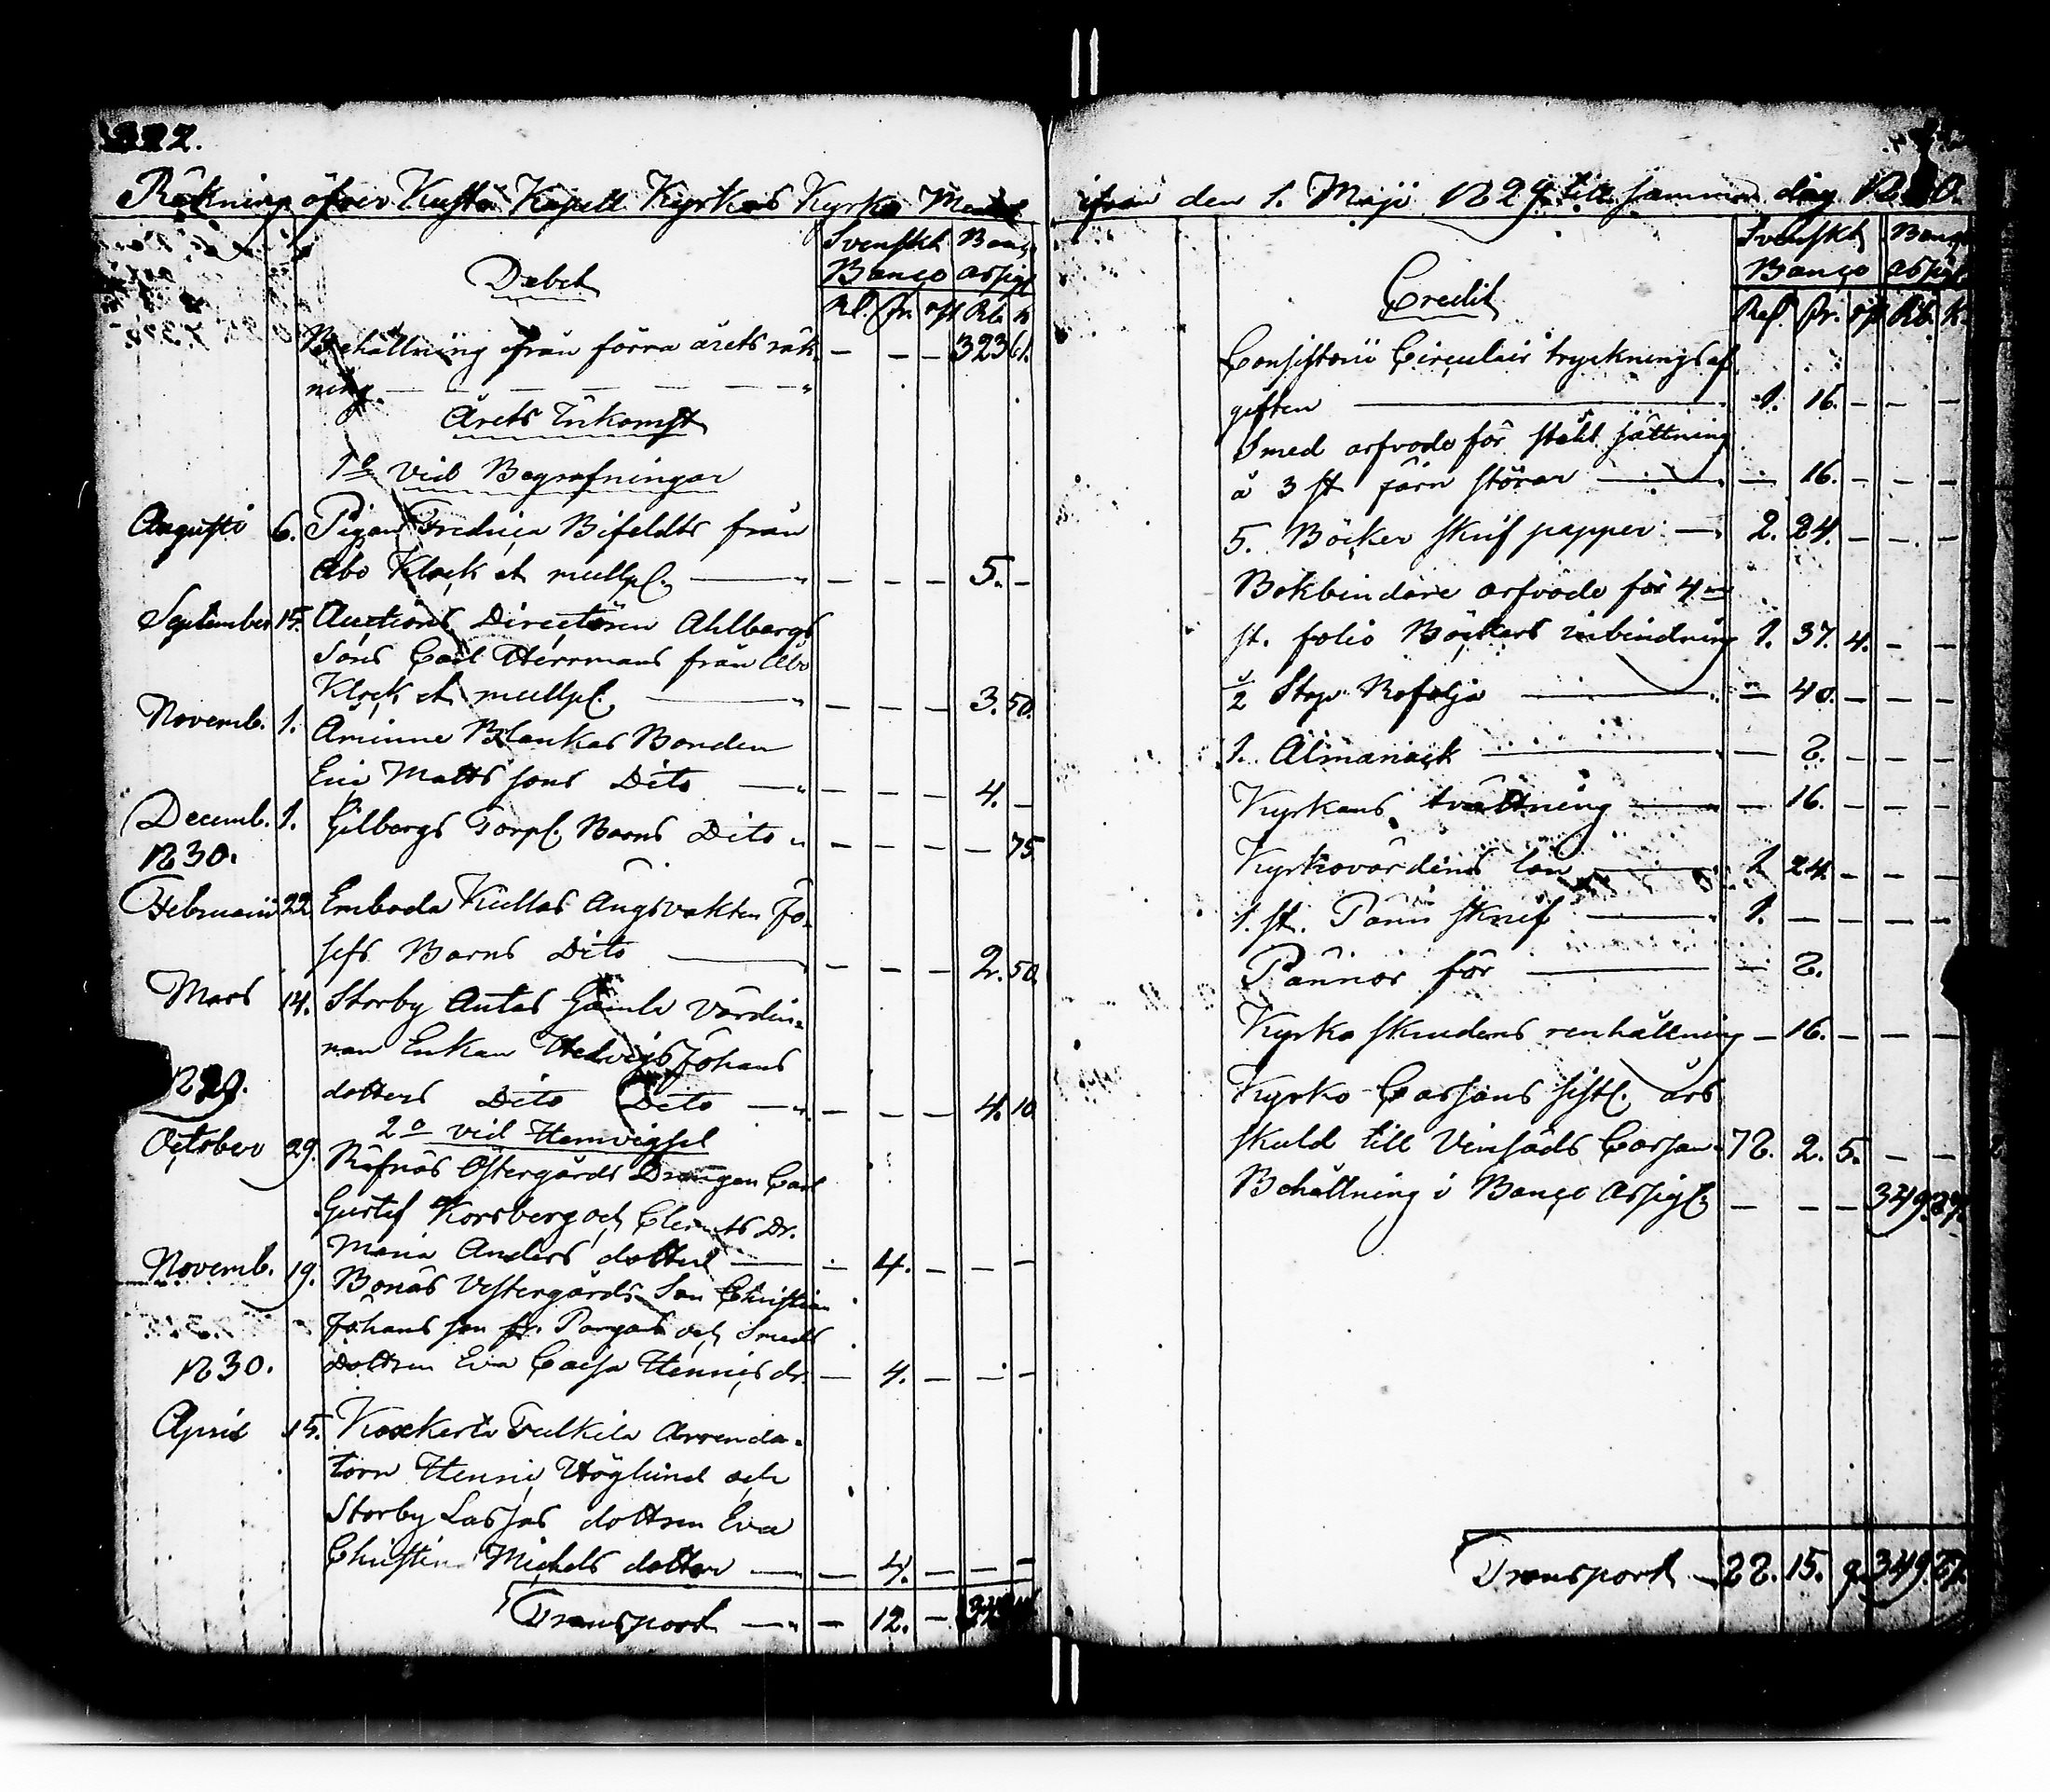 322.
Räkning öfver Kustö Kapell Kyrkas Kyrko Medel
Svenskt Banco
Banco assign
Debet
Rd. sk. rst Rb. k
Behållning från förra årets räk- — — — 323 61.
ning
Årets Inkomst
1o Vid Begrafningar
Augusti 6. Pigan Fredrica Bifeldts från
Åbo Klock et mullpl. — — — 5. —
September 15. Auctions Directören Ahlbergs
Sons Carl Herrmans från Åbo
Klock et mullpl. — — — 3. 50.
Novemb. 1. Åminne Blankas Bonden
Eric Mattssons Dito — — — 4. —
Decemb. 1. Gilbergs Torpl. Barns Dito — — — — 75
1830.
Februarii 22. Emboda Kullas Ängsvakten Jo-
sefs Barns Dito — — — 2. 50.
Mars 14. Storby Antas Gamla Värdin-
nan Enkan Hedvig Johans
dotters Dito Dito — — — 4. 10
1829.
2o vid Hemvigsel
October 29. Räfnäs Östergårds Drängen Carl
Gustaf Korsberg och Clemets Dr.
Maria Anders dotter — 4. — — —
Novemb. 19. Bonäs Vestergårds Son Christian
Johans son fr. Pargas och Smeds
1830. Dottren Eva Caisa Henrics dr. — 4. — — —
April 15. Kockerla Tulkila Arrenda-
torn Henric Höglund och
Storby Lassas dottren Eva
Christina Michels dotter — 4. — — —
Transport — 12. —
ifrån den 1. Maji 1829 till samma dag 1830.
Svenskt Banco
Banco assign
Credit
Rd. sk. rst Rb. k.
Consistorii Circulair tryckningsaf
giften 1. 16. — — —
Smed arfvode för stål sättning
å 3 st järn störar — 16. — — —
5. Böcker skrif papper 2. 24. — — —
Bokbindare arfvode för 4
st. folio Böckers inbindning 1. 37. 4. — —
1/2 Stop Rofolja — 40. — — —
1. Almanack — 8. — — —
Kyrkans tvättning — 16. — — —
Kyrkovärdens lön 1 24. — — —
1. st. Pann skruf 1. — — — —
Pännor för — 8.
Kyrko skrudens renhållning — 16. — — —
Kyrko Cassans sistl. års
skuld till Vinsäds Cassan 78. 2. 5. — —
Behållning i Banco Assign. — — — 349. 27.
Transport 88. 15. 9. 349. 27.